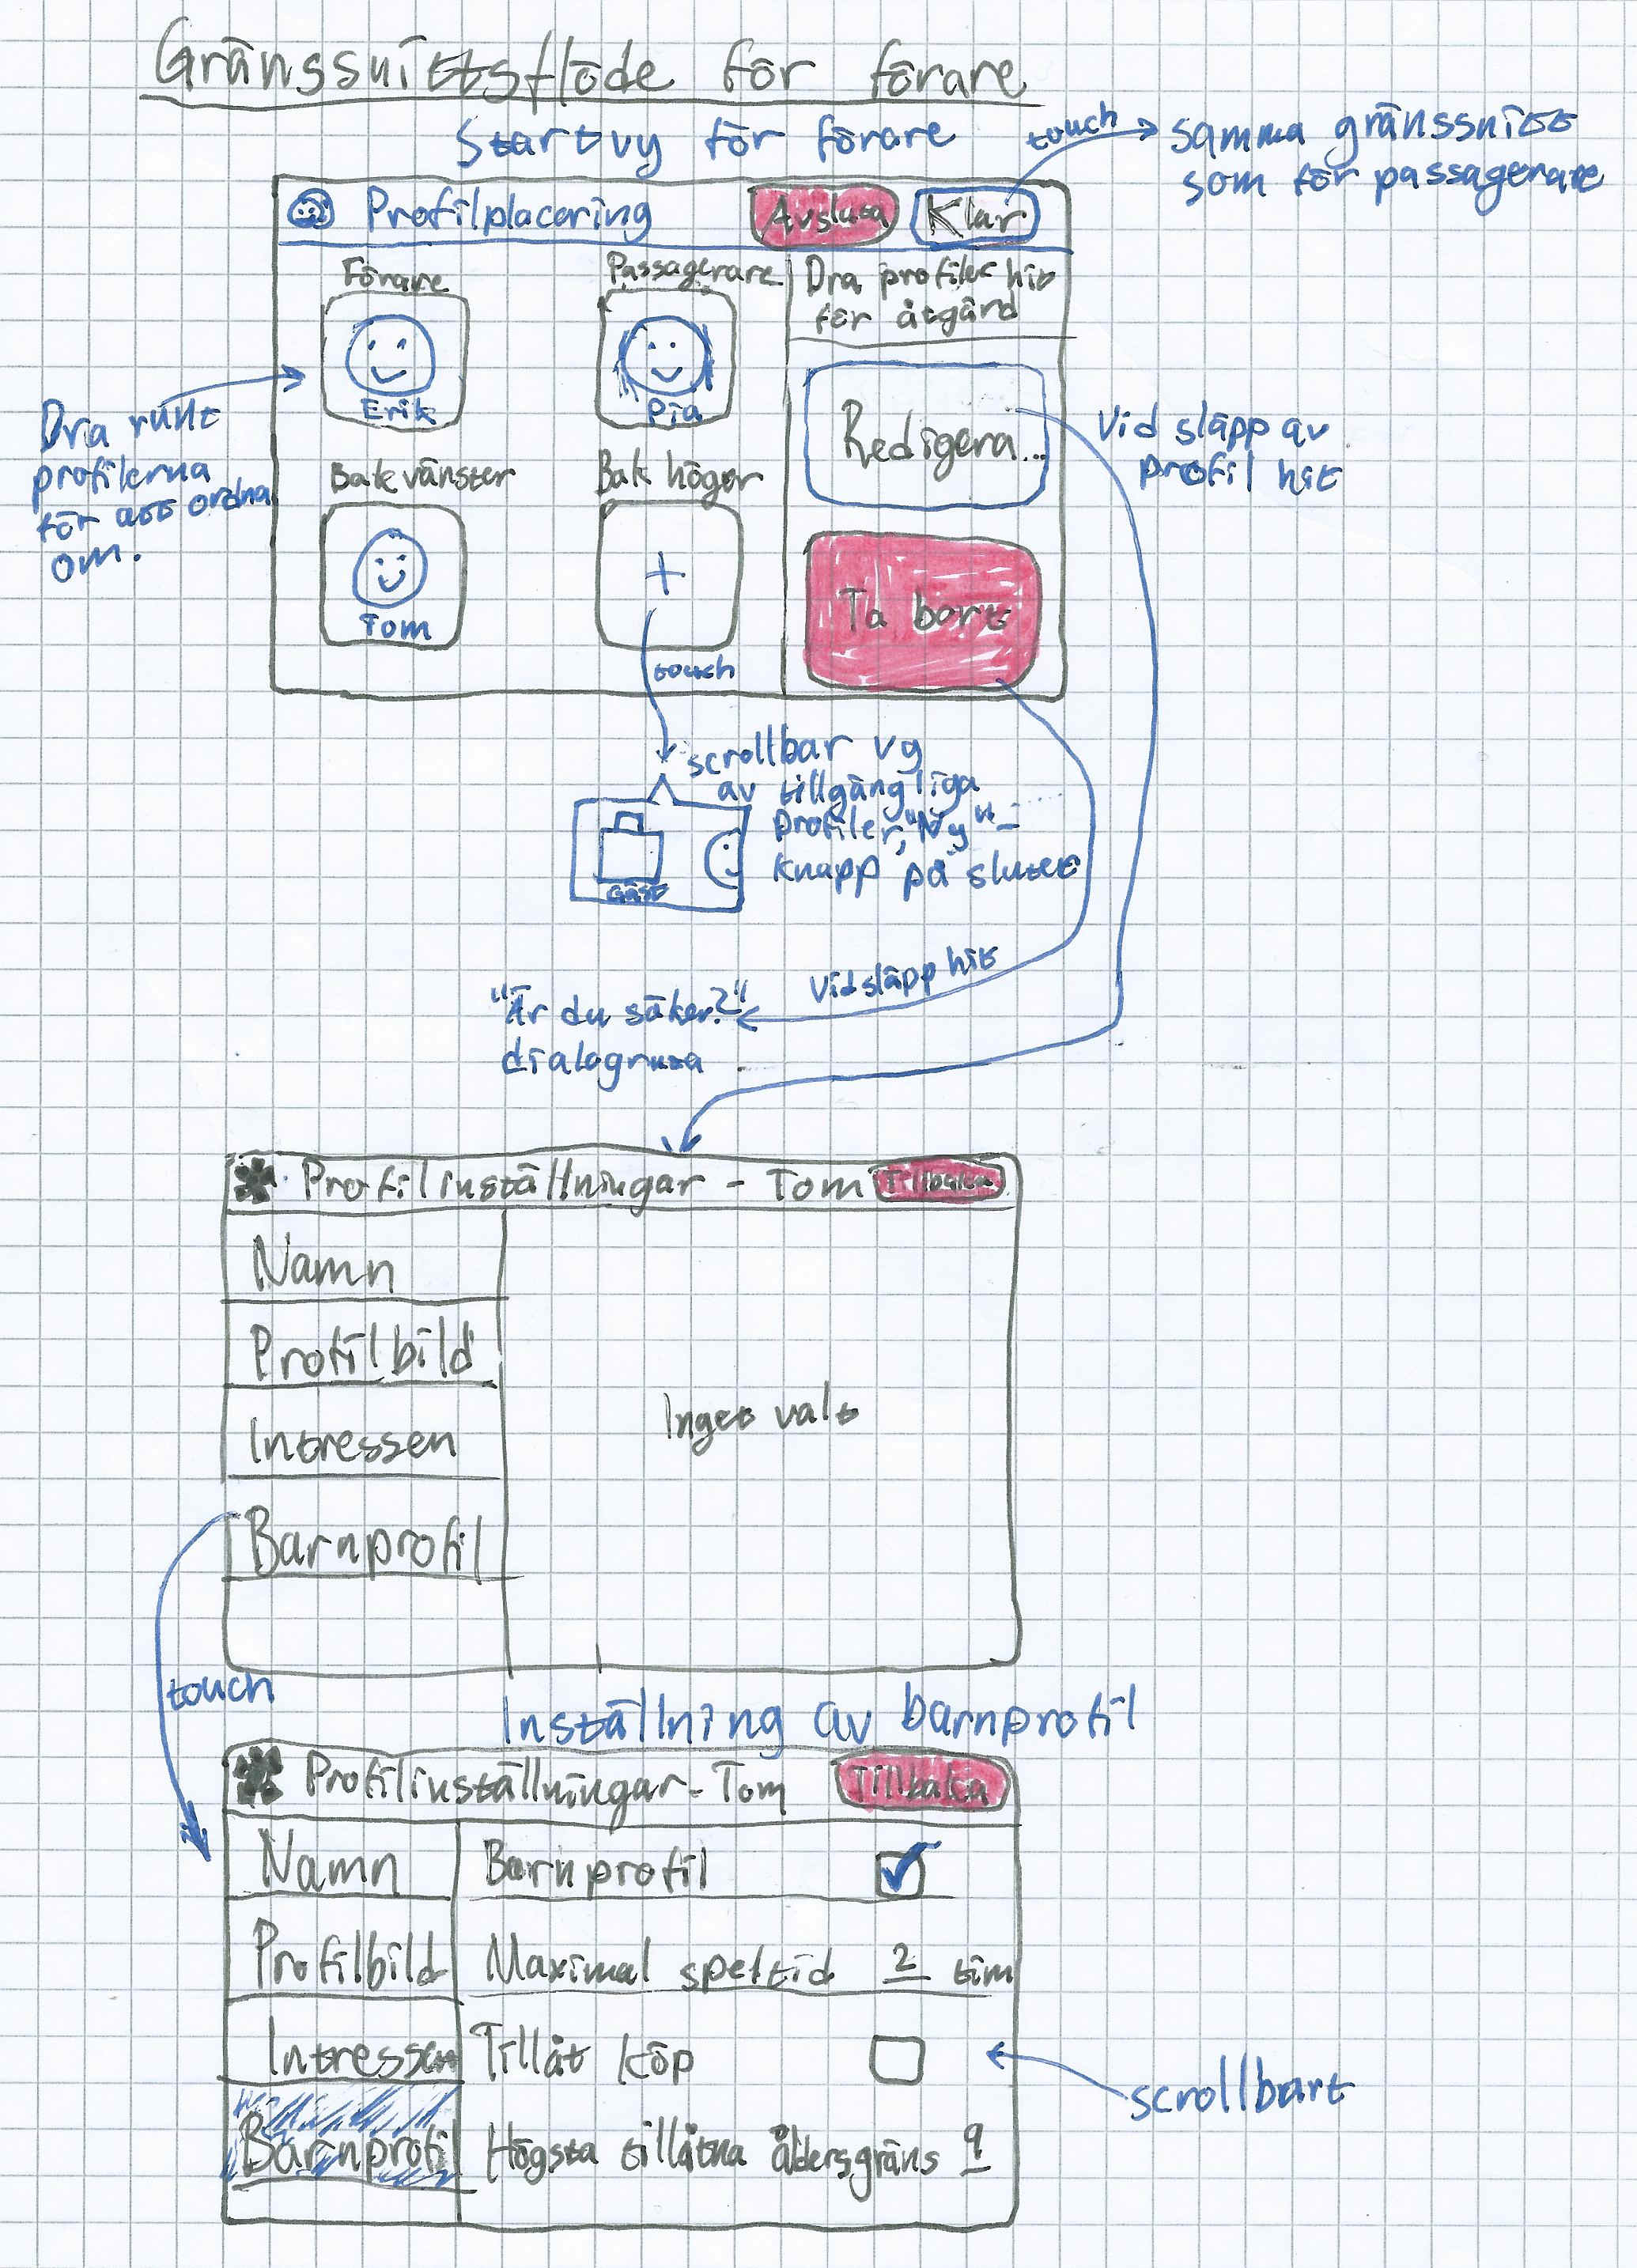 Gränssnittsflöde för förare
Startvy för förare
touch
samma gränssnitt
som för passagerare
Profilplacering
Avsluta
Klar
Förare
Passagerare
Dra profiler hit
för åtgärd
Erik
Pia
Redigera...
Dra runt
profilerna
för att ordna
om.
Vid släpp av
profil hit
Bak vänster
Bak höger
+
Tom
Ta bort
touch
scrollbar vy
av tillgängliga
profiler, "Ny"-
knapp på slutet
Gäst
Vid släpp hit
"Är du säker?"
dialogruta
Profilinställningar - Tom
Tillbaka
Namn
Profilbild
Intressen
Barnprofil
Inget valt
touch
Inställning av barnprofil
Profilinställningar - Tom
Tillbaka
Namn
Barnprofil
Profilbild
Maximal speltid 2 tim
Intressen
Tillåt köp
scrollbart
Barnprofil
Högsta tillåtna åldersgräns 9